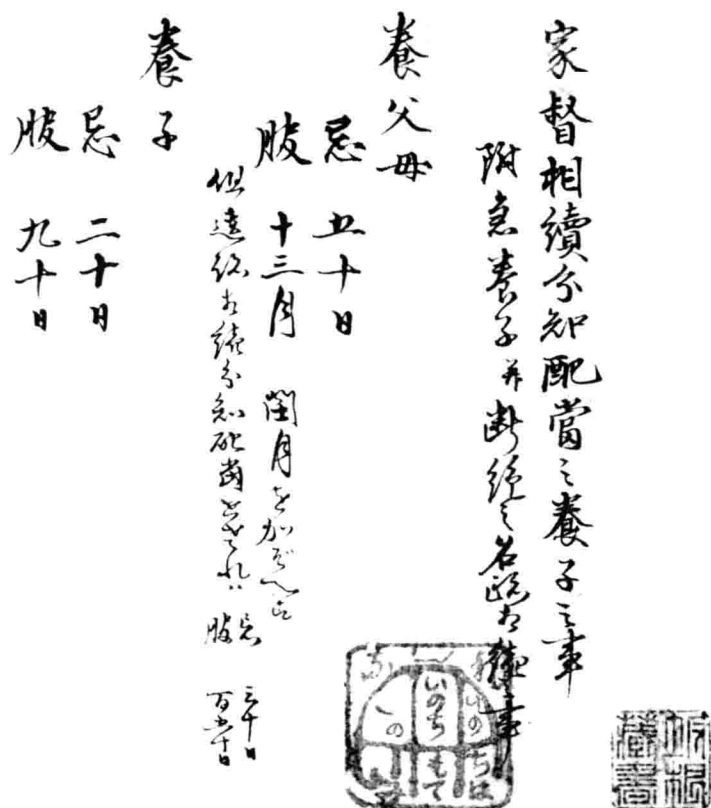 家督相續分知配當之養子之事
附急養子并断絶之名跡相續之事
養父母
忌 五十日
服 十三月 閏月を加
但遺跡相續分知配當 忌 三十日
服 百五十日
養子
忌 二十日
服 九十日
いのち